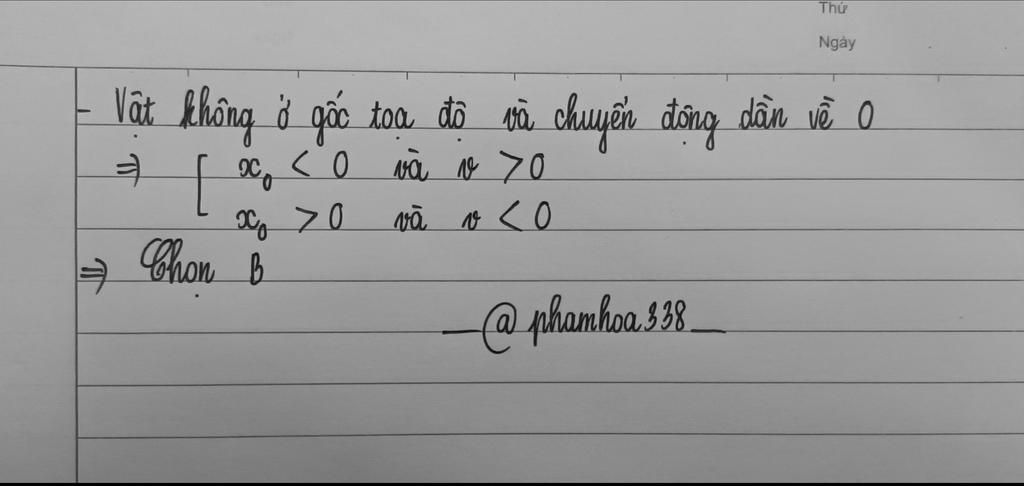 Thứ
Ngày
- Vật không ở gốc tọa độ và chuyển động dần về O
⇒ [ x₀ < 0 và v > 0
x₀ > 0 và v < 0
⇒ Chọn B
— @phamhoa338 —